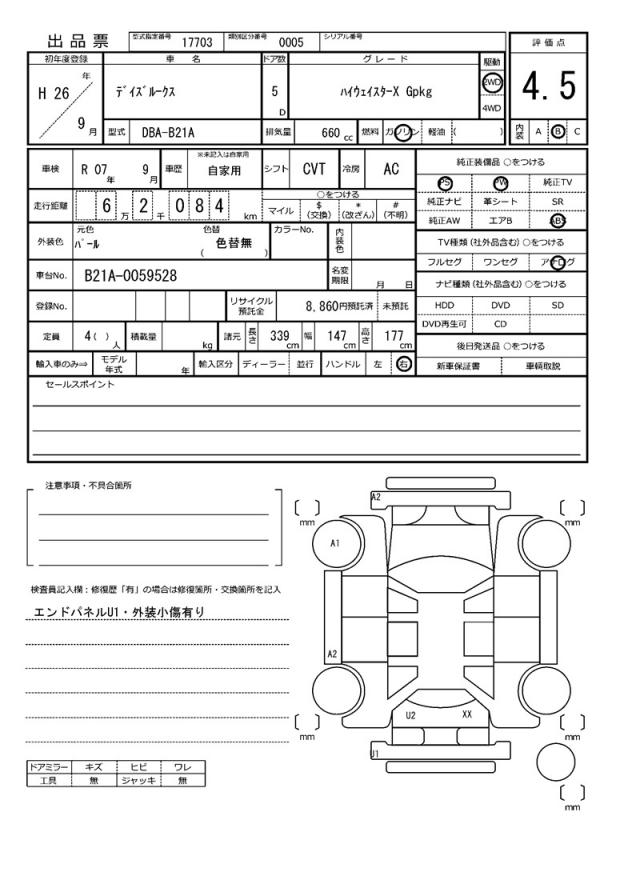 出品票 型式指定番号 17703 類別区分番号 0005 シリアル番号
初年度登録 車名 ドア数 グレード 駆動 評価点
H 26 年 9 月 ﾃﾞｲｽﾞﾙｰｸｽ 5 D ﾊｲｳｪｲｽﾀｰX Gpkg 2WD 4WD 4.5
型式 DBA-B21A 排気量 660 cc 燃料 ガソリン 軽油 ( ) 内装 A B C
車検 R 07 年 9 月 車歴 ※未記入は自家用 自家用 シフト CVT 冷房 AC 純正装備品 ○をつける
PS PW 純正TV
走行距離 6 万 2 千 0 8 4 km ○をつける マイル $ (交換) * (改ざん) # (不明) 純正ナビ 革シート SR
純正AW エアB ABS
外装色 元色 ﾊﾟｰﾙ 色替 色替無 ( ) カラーNo. 内装色 TV種類 (社外品含む) ○をつける
フルセグ ワンセグ アナログ
車台No. B21A-0059528 名変期限 月 日 ナビ種類 (社外品含む) ○をつける
登録No. リサイクル預託金 8,860円預託済 未預託 HDD DVD SD
DVD再生可 CD
定員 4 ( ) 人 積載量 kg 諸元 長さ 339 cm 幅 147 cm 高さ 177 cm 後日発送品 ○をつける
輸入車のみ⇒ モデル年式 年 輸入区分 ディーラー 並行 ハンドル 左 右 新車保証書 車輌取説
セールスポイント
注意事項・不具合箇所
A2
mm mm
A1
検査員記入欄：修復歴「有」の場合は修復箇所・交換箇所を記入
エンドパネルU1・外装小傷有り
A2
U2 XX
mm mm
U1
ドアミラー キズ ヒビ ワレ
工具 無 ジャッキ 無
mm